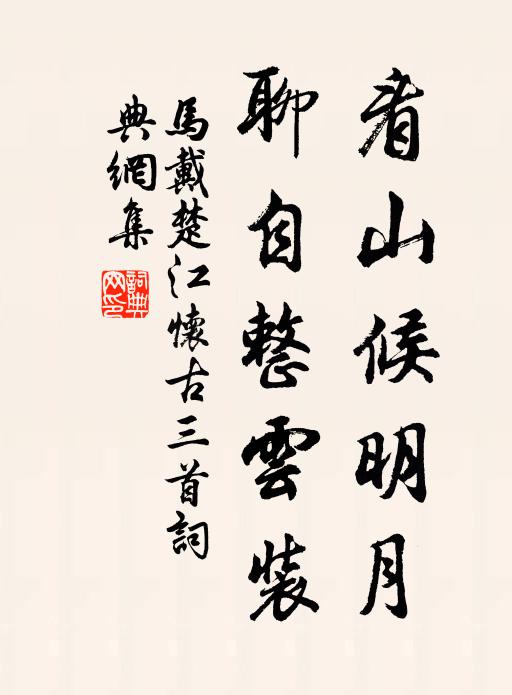 看山候明月
聊自整雲裝
馬戴楚江懷古三首詞
典網集
詞典網印